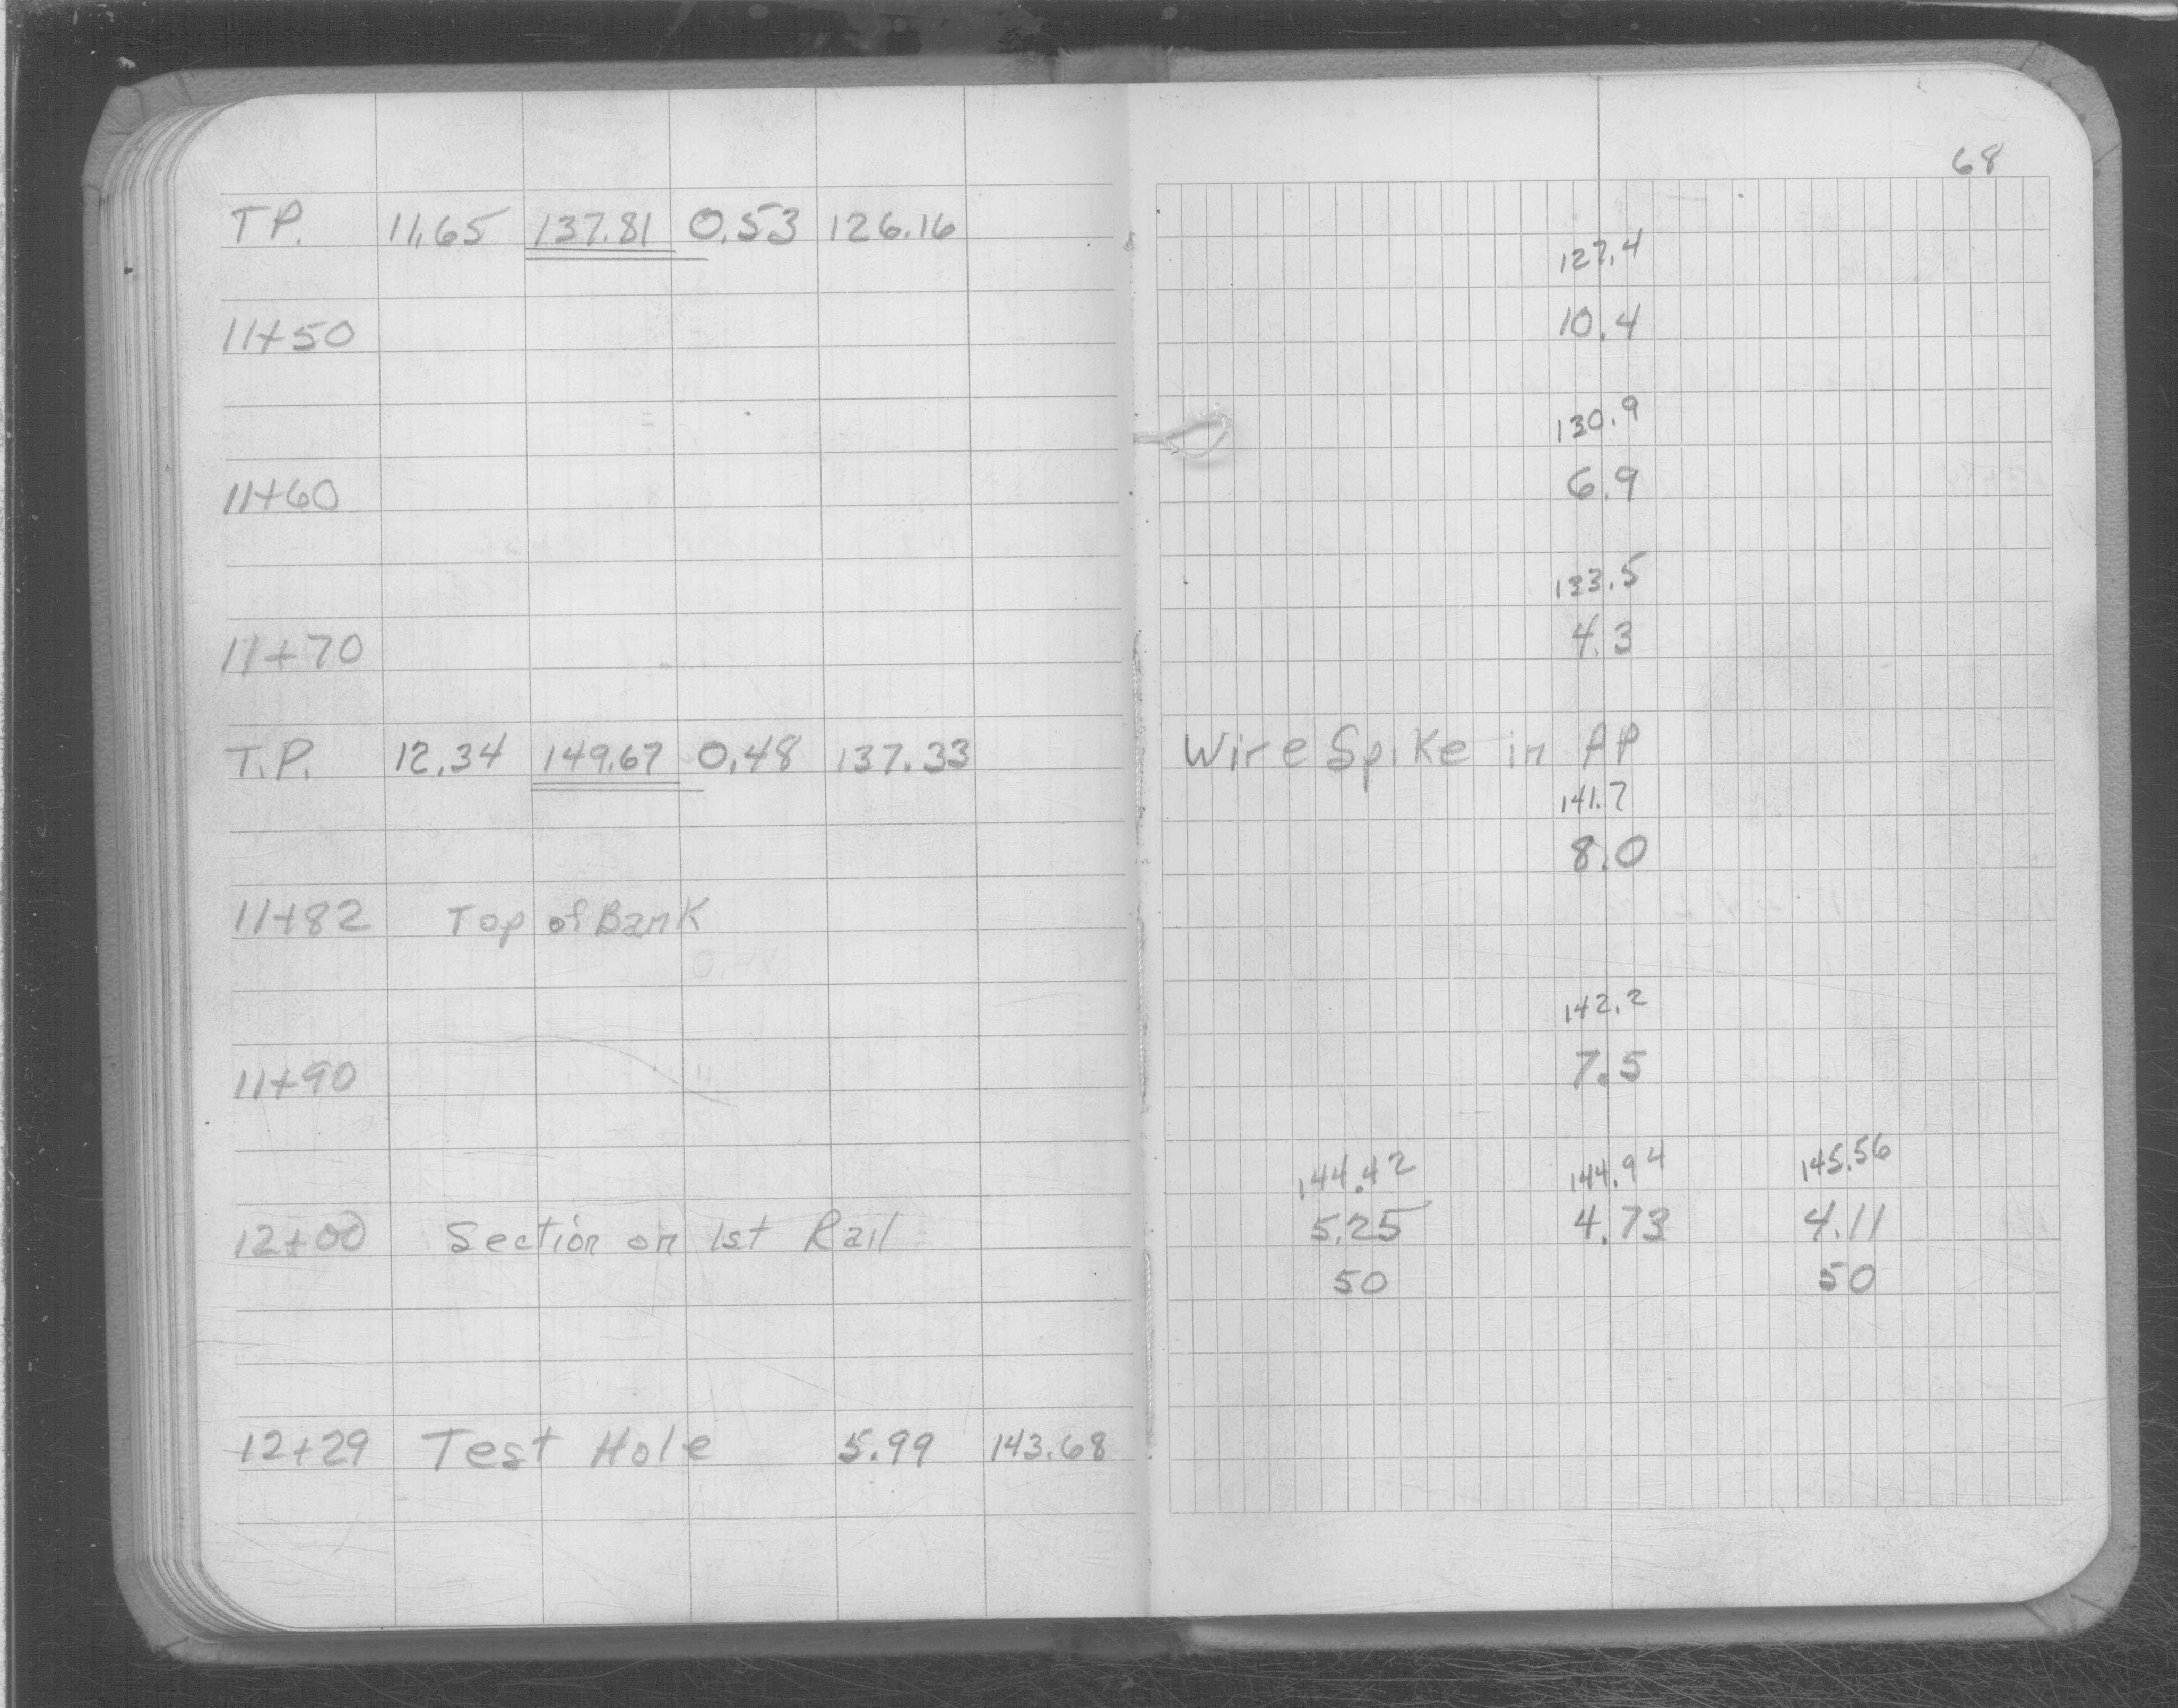 68
T.P. 11.65 137.81 0.53 126.16
127.4
11+50 10.4
130.9
11+60 6.9
133.5
11+70 4.3
T.P. 12.34 149.67 0.48 137.33 Wire Spike in PP
141.7
8.0
11+82 Top of Bank
142.2
11+90 7.5
144.42 144.94 145.56
12+00 Section on 1st Rail 5.25 4.73 4.11
50 50
12+29 Test Hole 5.99 143.68